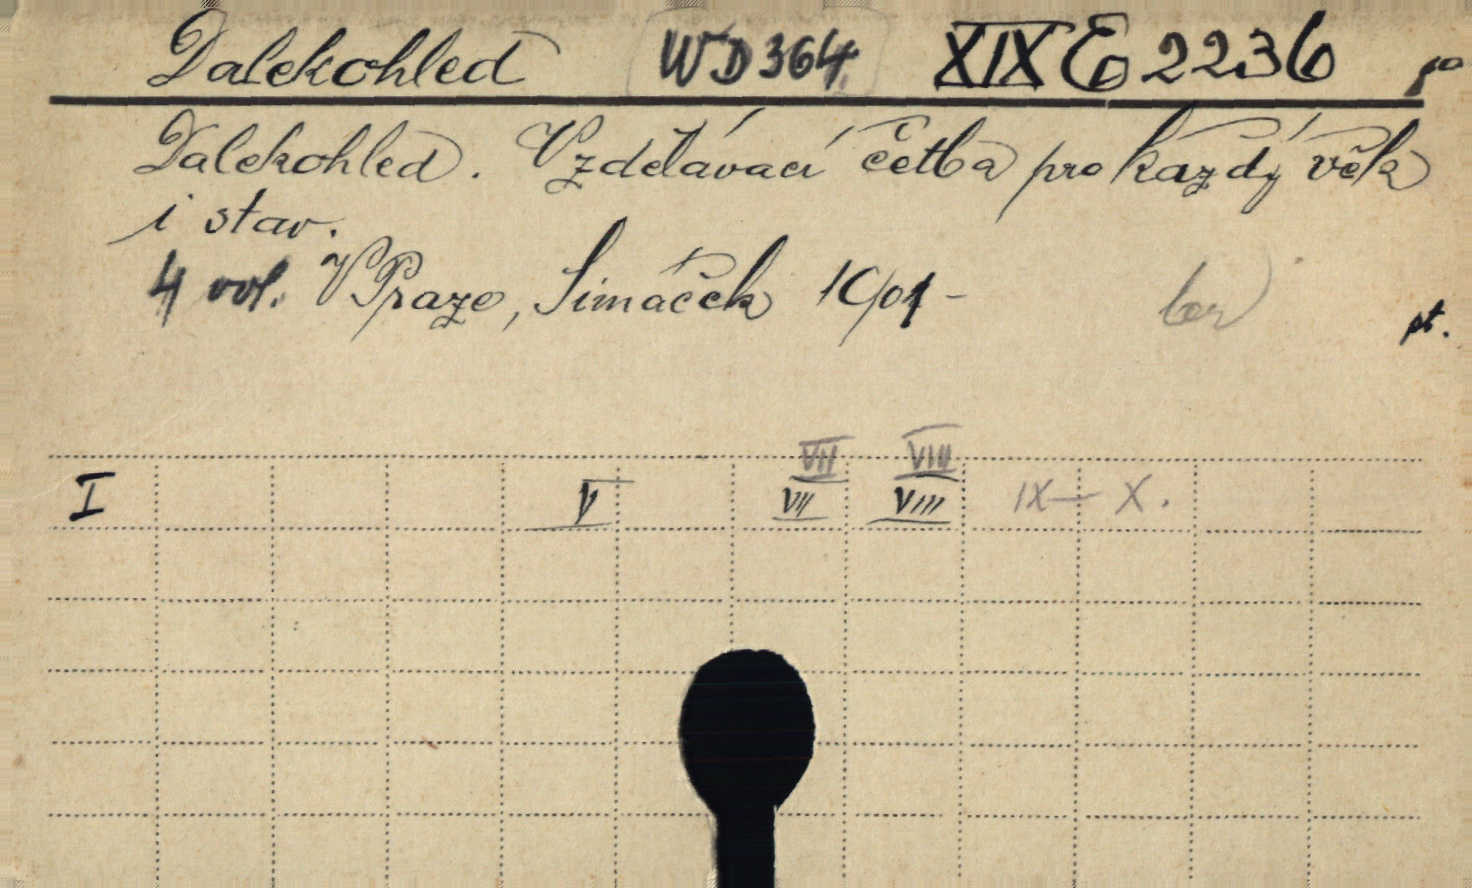 Dalekohled WD 364. XIX E 2236
Dalekohled. Vzdělávací četba pro každý věk
i stav.
4 vol. V Praze, Šimáček 1901 -
pt.
VII VIII
I V VII VIII IX — X.